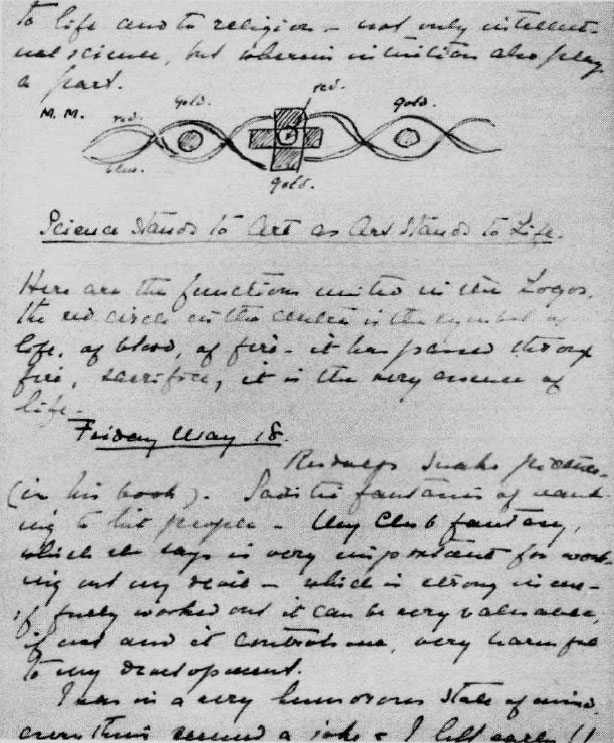 to life and to religion – not only intellect-
ual science, but wherein intuition also play
a part.
M. M.
red.
gold.
red.
gold.
blue.
gold.
Science stands to Art as Art stands to Life.
Here are the functions united in the Logos.
the red circle in the centre is the symbol of
life, of blood, of fire – it has passed through
fire, sacrifice, it is the very essence of
life.
Friday May 18.
snake
(in his book). Sadistic fantasies of want-
ing to hit people – My Club fantasy,
which he says is very important for work-
ing out my devil – which is strong in me –
if fully worked out it can be very valuable,
if not and it controls me, very harmful
to my development.
I was in a very humorous state of mind
everything seemed a joke & I left early !!